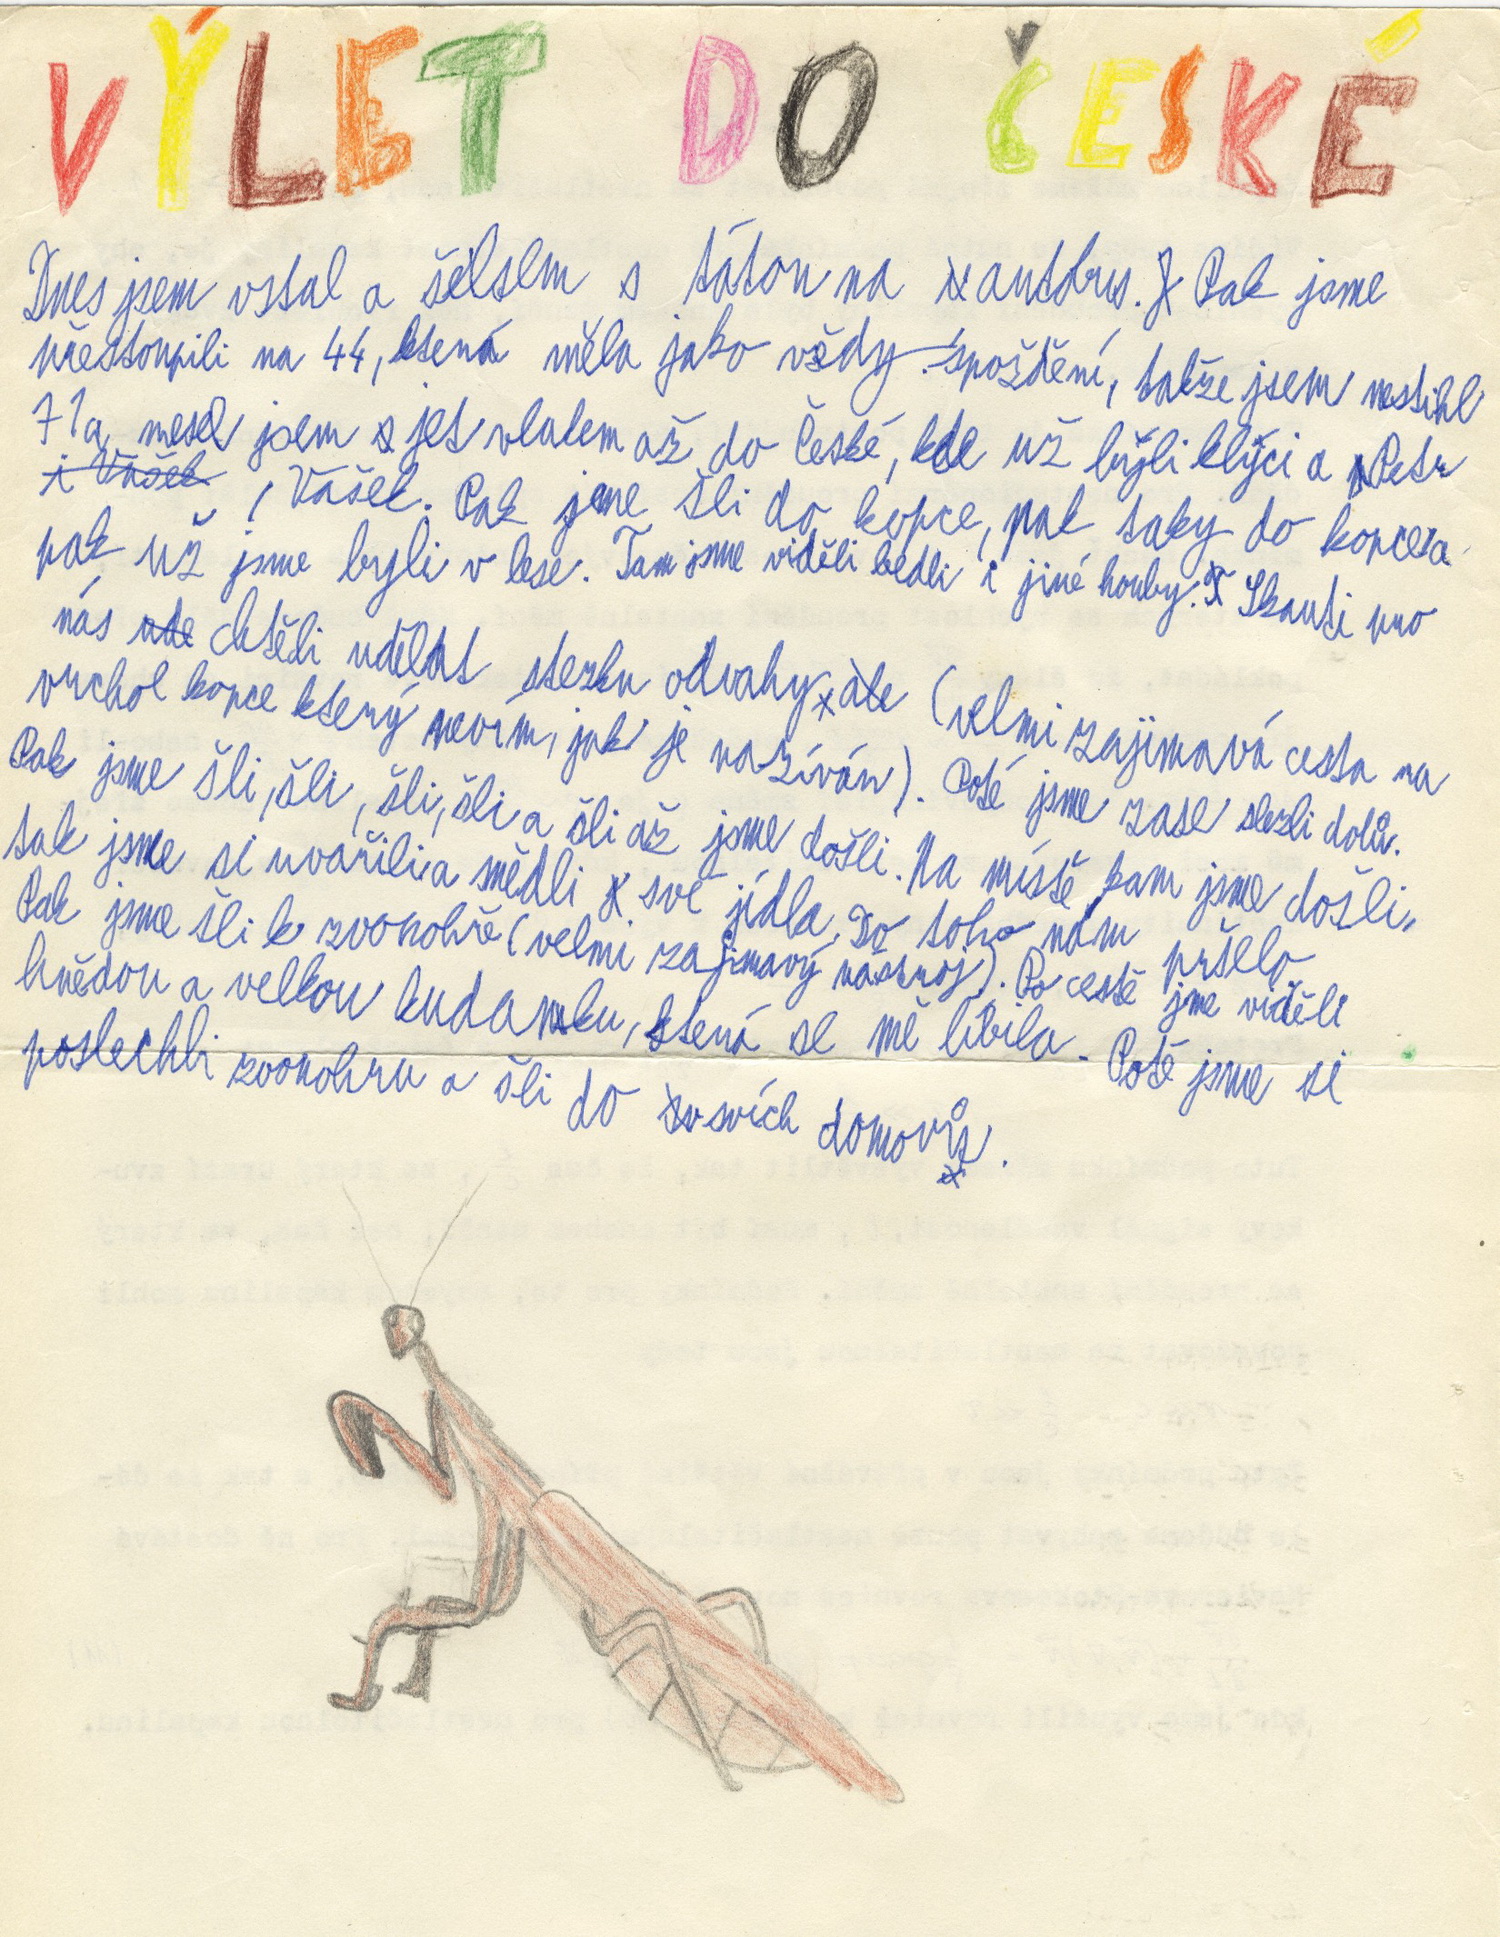 VÝLET DO ČESKÉ
Dnes jsem vstal a šelsem s tátou na autobus. Pak jsme
přestoupili na 44, která měla jako vždy spoždění, takže jsem nestihl
71a, musel jsem jet vlakem až do České, kde už byli klýci a Petr
i Vášek , Vášek. Pak jsme šli do kopce, pak taky do kopce a
pak už jsme byli v lese. Tam jsme viděli bedli i jiné houby. Skauti pro
nás chtěli udělat stezku odvahy ale (velmi zajimavá cesta na
vrchol kopce který nevím, jak je nazíván). Poté jsme zase slezli dolů.
Pak jsme šli, šli, šli, šli a šli až jsme došli. Na místě, kam jsme došli,
tak jsme si uvařili a snědli své jídla. Do toho nám pršelo.
Pak jsme šli k zvonohře (velmi zajimavý nástroj). Po cestě jme viděli
hnědou a velkou kudlanku, která se mě líbila. Poté jsme si
poslechli zvonohru a šli do svích domovů.